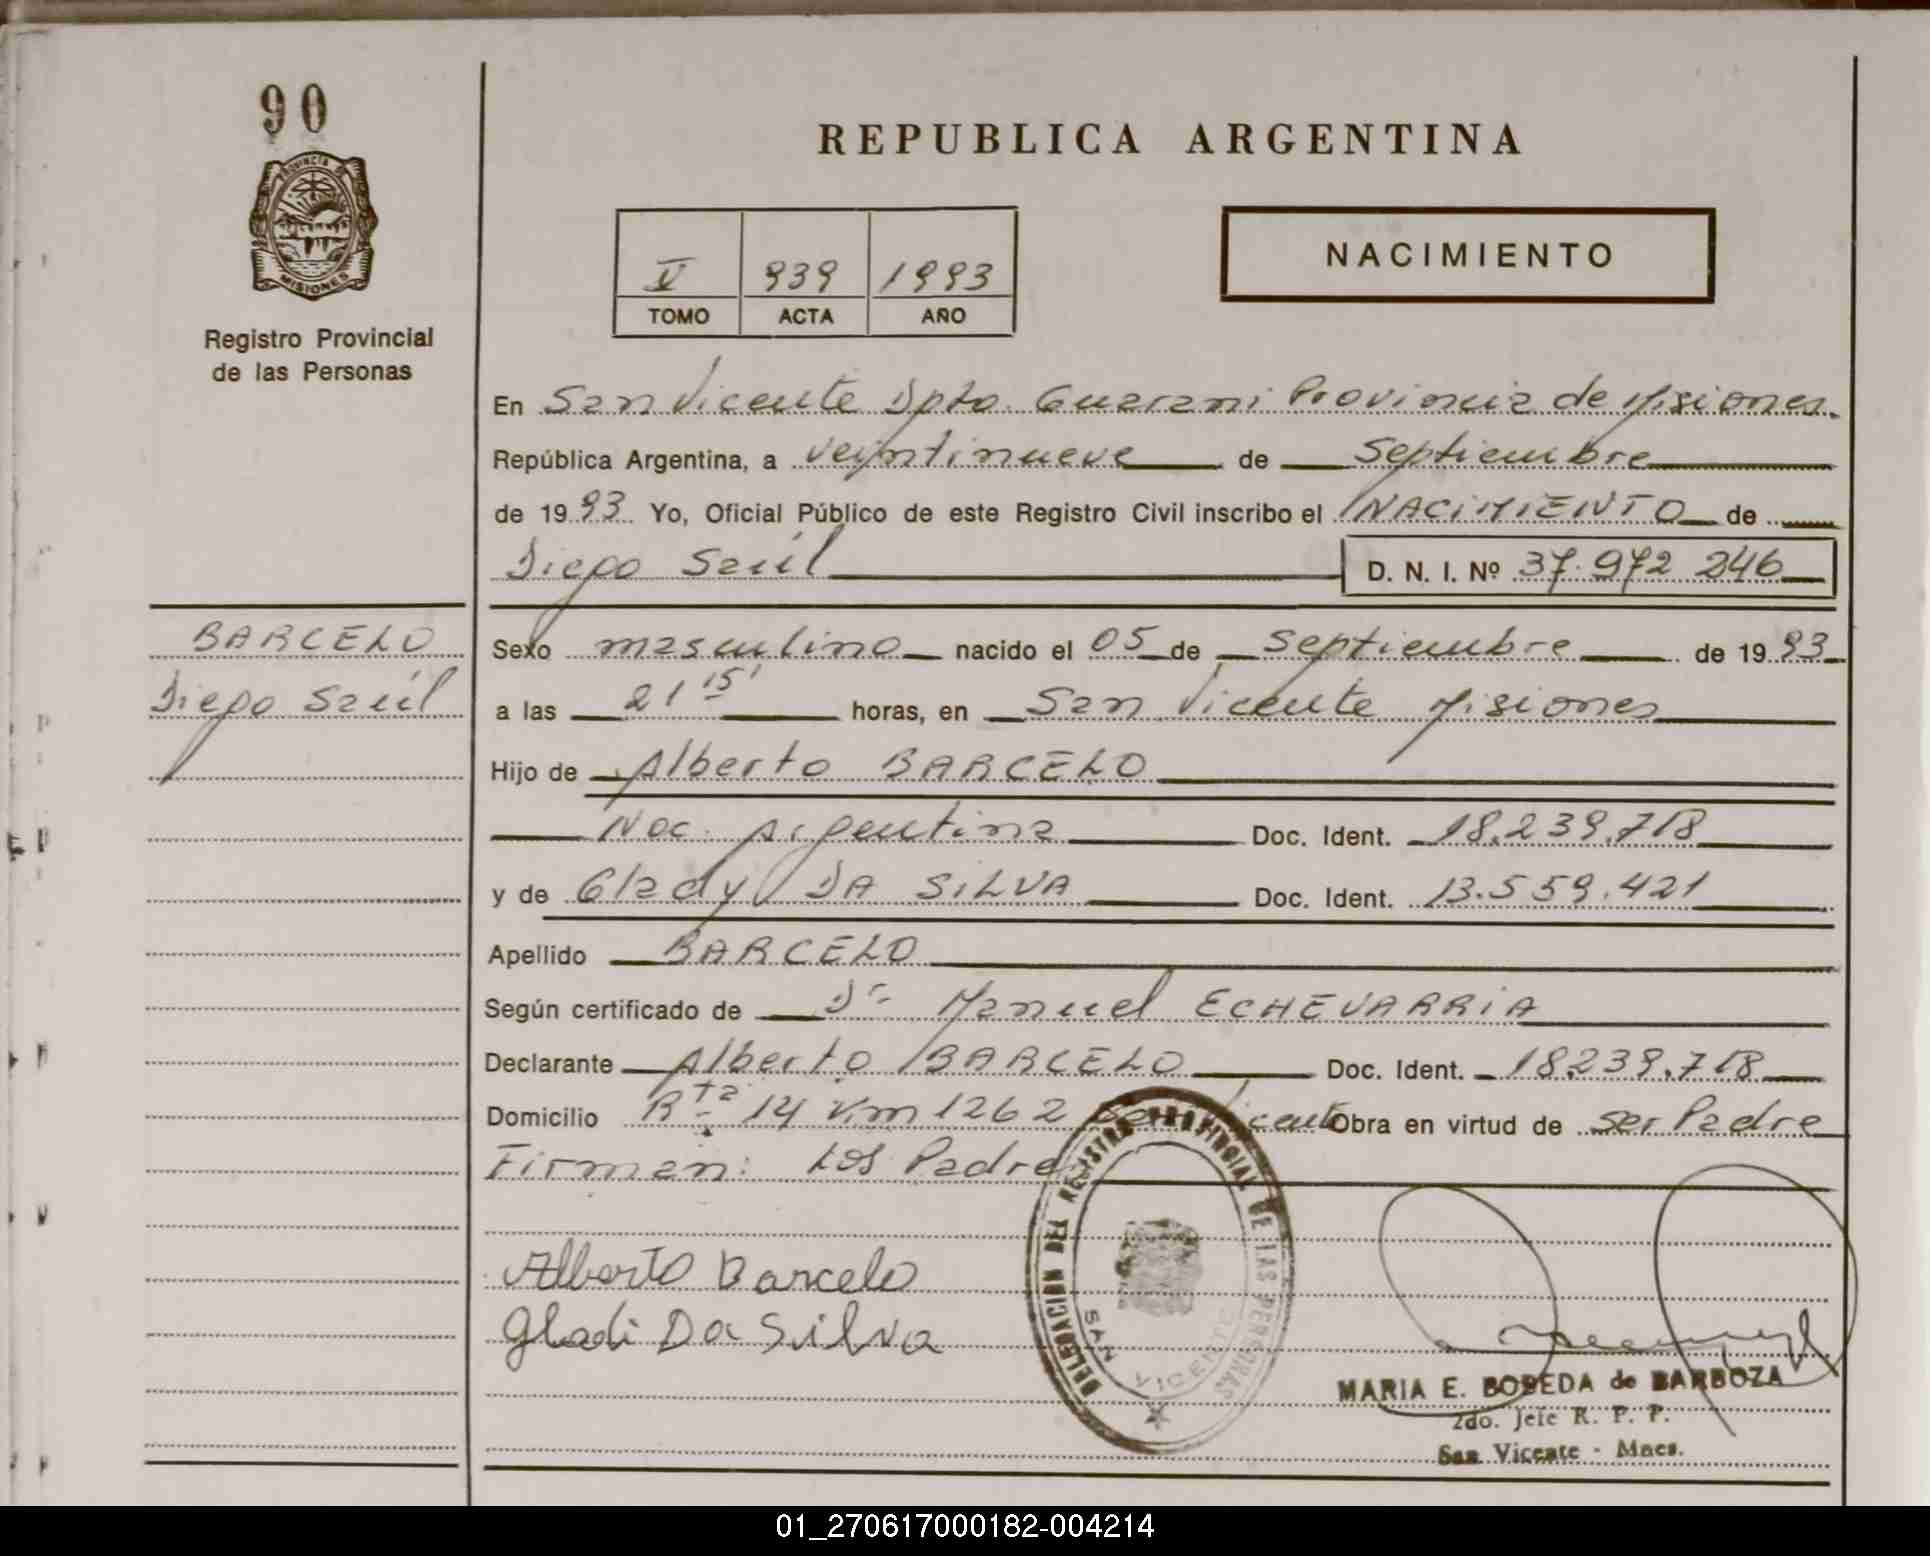 90
PROVINCIA DE
MISIONES
Registro Provincial
de las Personas
BARCELO
Diego Saúl
REPUBLICA ARGENTINA
V 939 1993
TOMO ACTA AÑO
NACIMIENTO
En San Vicente Dpto. Guarani Provincia de Misiones.
República Argentina, a veintinueve de Septiembre
de 1993 Yo, Oficial Público de este Registro Civil inscribo el NACIMIENTO de
Diego Saúl D. N. I. Nº 37.972 246
Sexo masculino nacido el 05 de Septiembre de 1993
a las 21 15' horas, en San Vicente Misiones
Hijo de Alberto BARCELO
Nac. Argentina Doc. Ident. 18.239.718
y de Glady DA SILVA Doc. Ident. 13.559.421
Apellido BARCELO
Según certificado de Dr. Manuel ECHEVARRIA
Declarante Alberto BARCELO Doc. Ident. 18.239.718
Domicilio Rta 14 Km 1262 San Vicente Obra en virtud de ser Padre
Firman: Los Padres
Alberto Barcelo
Gladi Da Silva
DELEGACION DEL REGISTRO PROVINCIAL DE LAS PERSONAS
SAN VICENTE
MARIA E. BOBEDA de BARBOZA
2do. Jefe R. P. P.
San Vicente - Mnes.
01_270617000182-004214